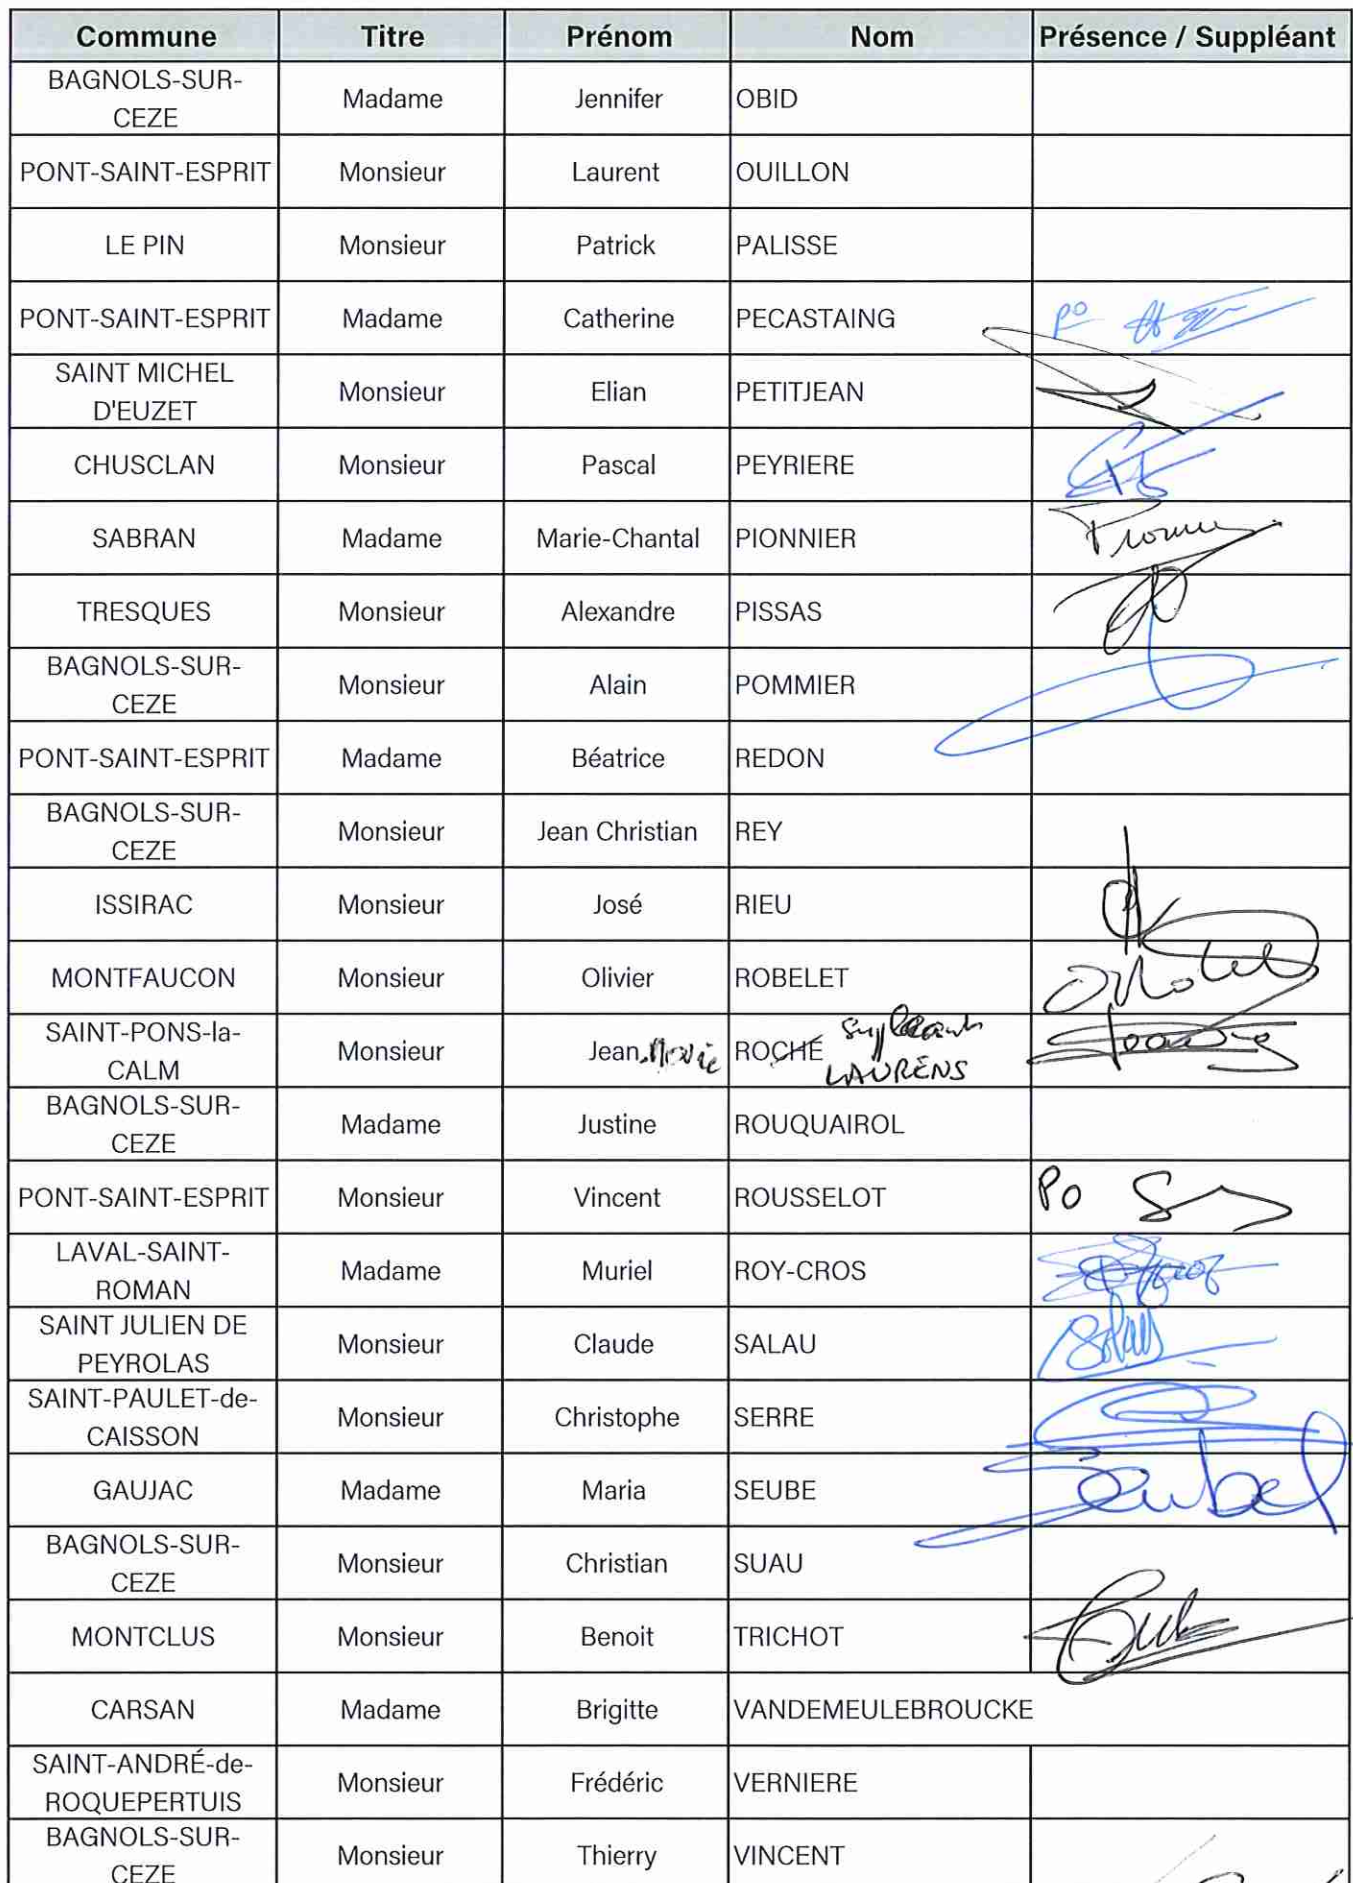 Commune Titre Prénom Nom Présence / Suppléant
BAGNOLS-SUR-
CEZE Madame Jennifer OBID
PONT-SAINT-ESPRIT Monsieur Laurent OUILLON
LE PIN Monsieur Patrick PALISSE
PONT-SAINT-ESPRIT Madame Catherine PECASTAING PO
SAINT MICHEL
D'EUZET Monsieur Elian PETITJEAN
CHUSCLAN Monsieur Pascal PEYRIERE
SABRAN Madame Marie-Chantal PIONNIER
TRESQUES Monsieur Alexandre PISSAS
BAGNOLS-SUR-
CEZE Monsieur Alain POMMIER
PONT-SAINT-ESPRIT Madame Béatrice REDON
BAGNOLS-SUR-
CEZE Monsieur Jean Christian REY
ISSIRAC Monsieur José RIEU
MONTFAUCON Monsieur Olivier ROBELET
SAINT-PONS-la-
CALM Monsieur Jean Marie ROCHE Suppléant
LAURENS
BAGNOLS-SUR-
CEZE Madame Justine ROUQUAIROL
PONT-SAINT-ESPRIT Monsieur Vincent ROUSSELOT PO
LAVAL-SAINT-
ROMAN Madame Muriel ROY-CROS
SAINT JULIEN DE
PEYROLAS Monsieur Claude SALAU
SAINT-PAULET-de-
CAISSON Monsieur Christophe SERRE
GAUJAC Madame Maria SEUBE Seube
BAGNOLS-SUR-
CEZE Monsieur Christian SUAU
MONTCLUS Monsieur Benoit TRICHOT
CARSAN Madame Brigitte VANDEMEULEBROUCKE
SAINT-ANDRÉ-de-
ROQUEPERTUIS Monsieur Frédéric VERNIERE
BAGNOLS-SUR-
CEZE Monsieur Thierry VINCENT